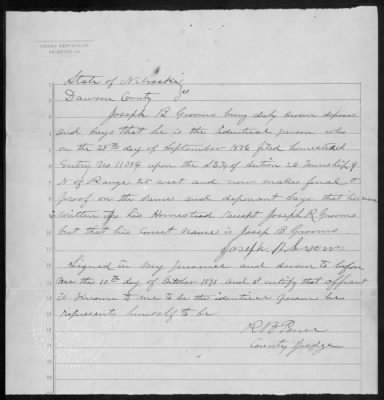 OMAHA REPUBLICAN
State of Nebraska
Dawson County } ss
Joseph B Grooms being duly sworn deposes
and says that he is the identical person who
on the 28th day of September 1886 filed homestead
Entry No 11384 upon the of Section 28 Township 9
N of Range 25 west and now makes final
proof on the same and deponant says that his name
written in his Homestead Receipt Joseph R Grooms
but that his correct name is Josep B Grooms
Joseph B Grooms
Signed in my presence and sworn to before
me the 10th day of October 1891 and I certify that affiant
is Known to me to be the identical person he
represents himself to be
County Judge